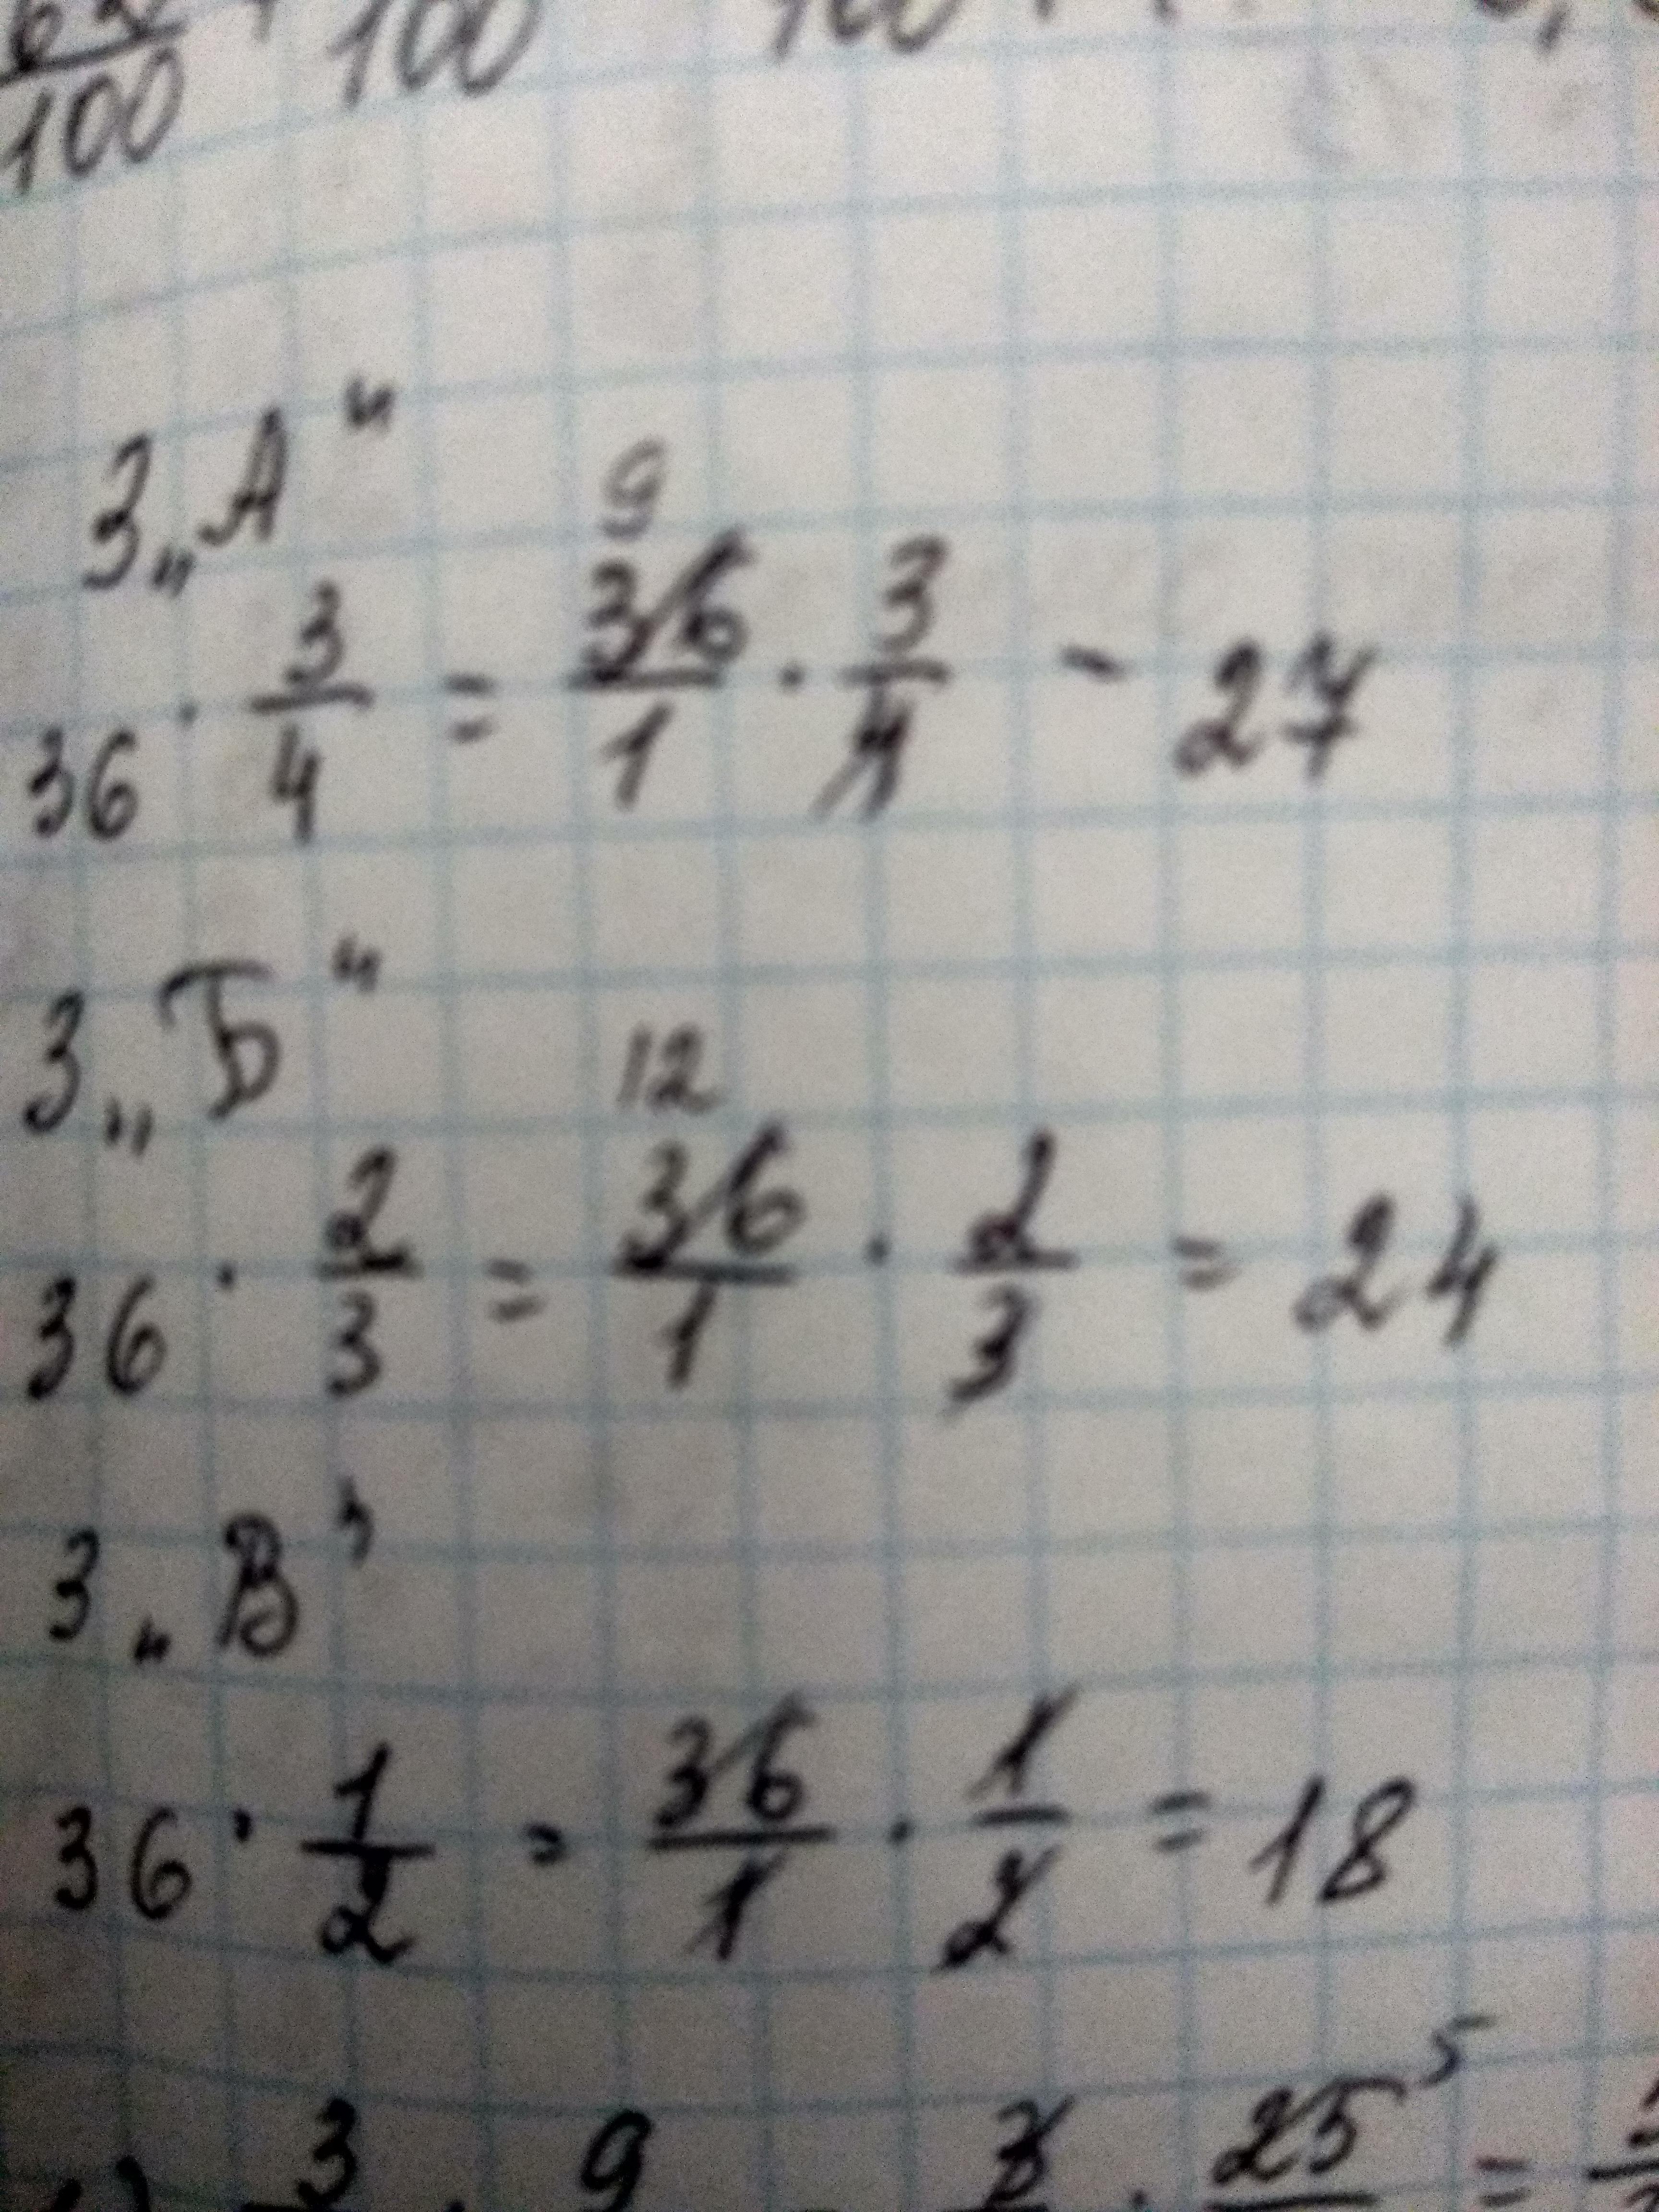 100 100 100
3 „А“
9
36 · 3/4 = 36/1 · 3/4 - 27
3 „Б“
12
36 · 2/3 = 36/1 · 2/3 = 24
3 „В“
36 · 1/2 = 36/1 · 1/2 = 18
5
3 9 3 · 25 =